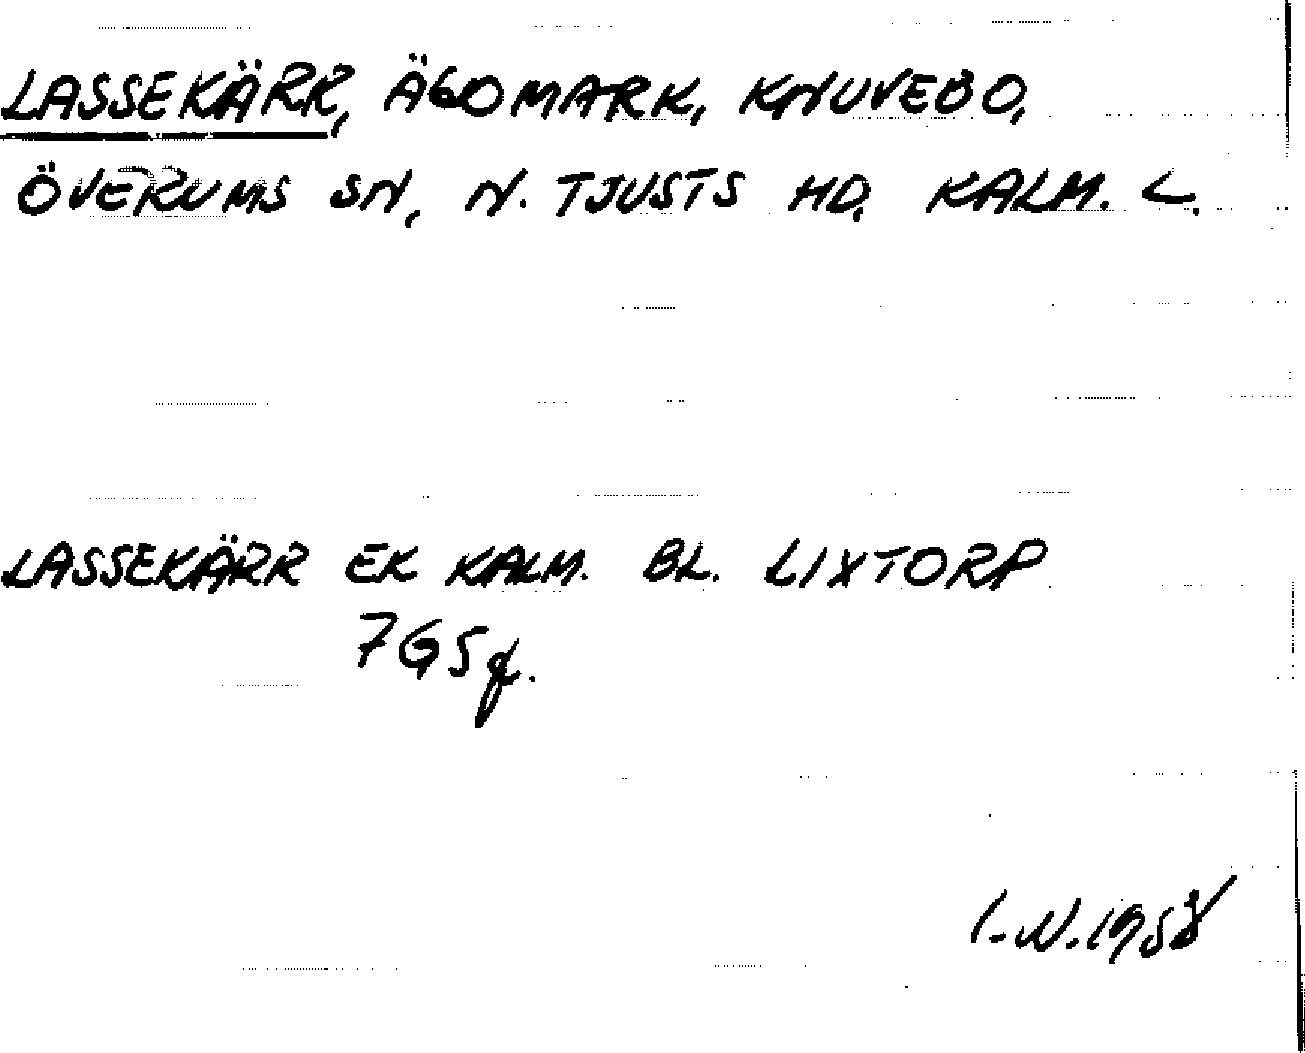 LASSEKÄRR, ÄGOMARK, KNUVEBO,
ÖVERUMS SN, N. TJUSTS HD. KALM. L.
LASSEKÄRR EK KALM. BL. LIXTORP
7G5f.
I.N. 1958